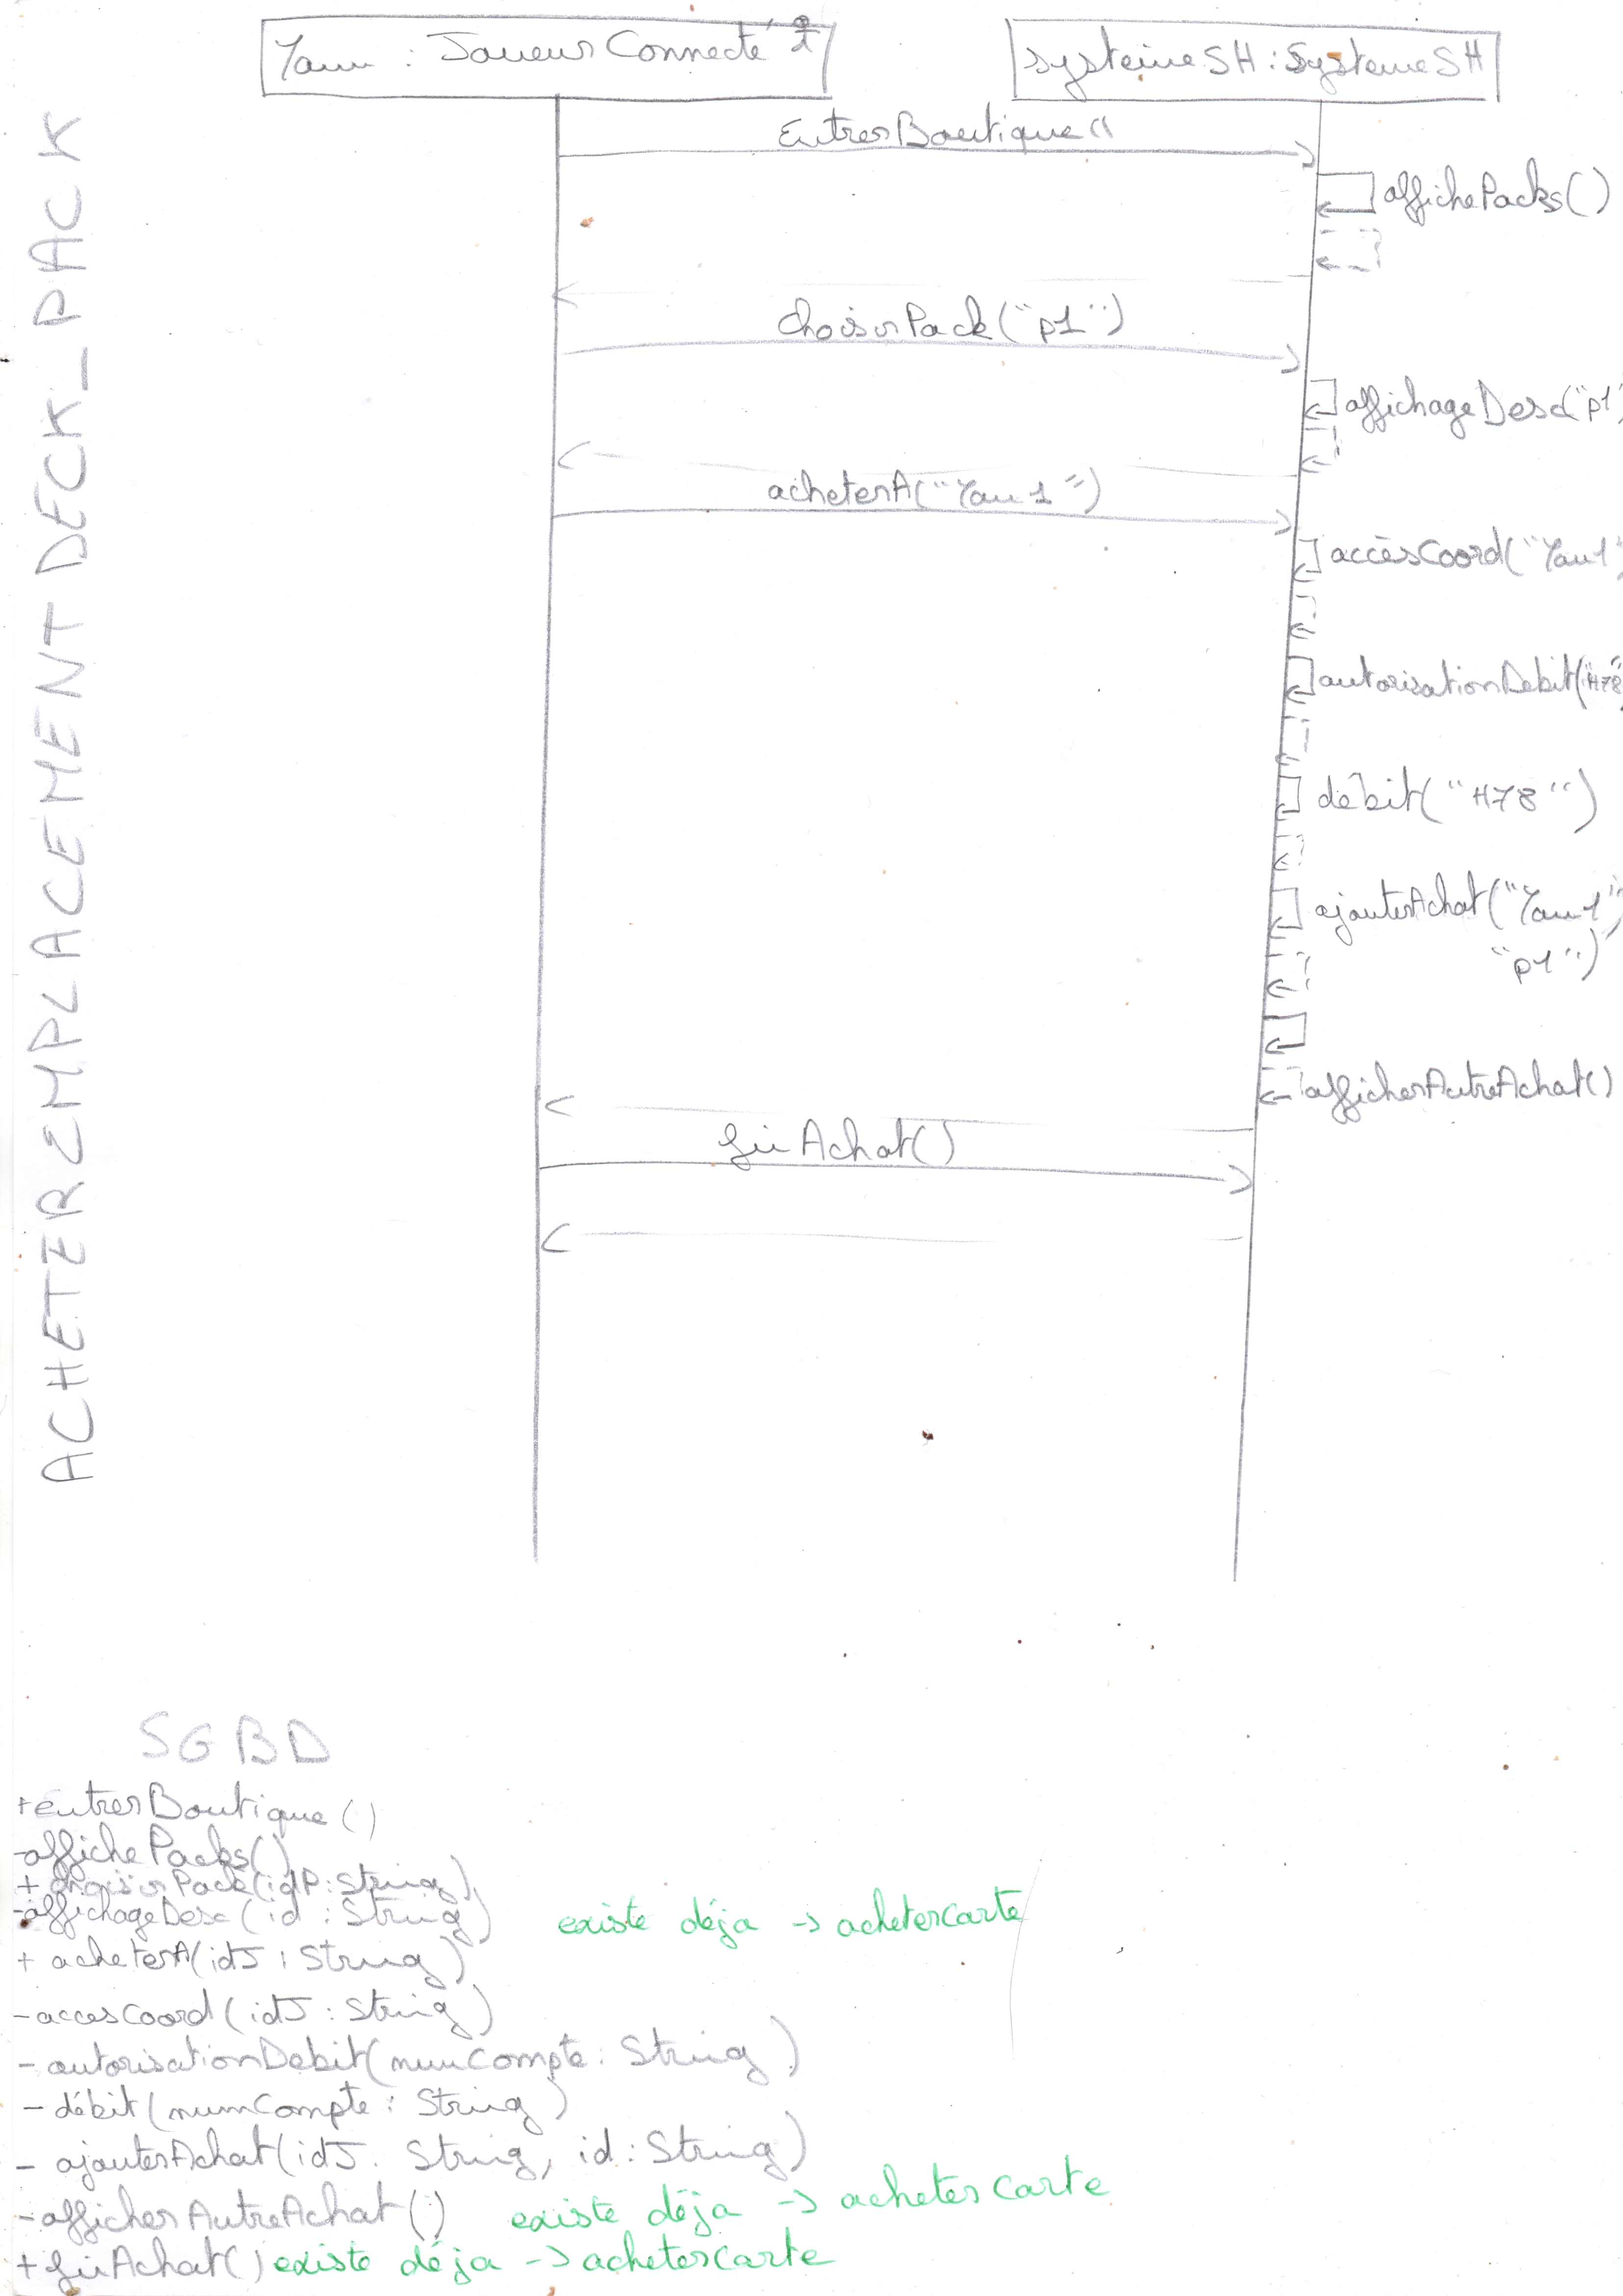 Yann : JoueurConnecté
systemeSH : SystemeSH
ACHETER EMPLACEMENT DECK_PACK
EntrerBoutique()
affichePacks()
choisirPack("p1")
affichageDesc("p1"
acheterA("Yan1")
accèsCoord("Yan1"
autorisationDebit("H78"
débit("H78")
ajouterAchat("Yan1",
"p1")
afficherAutreAchat()
finAchat()
SGBD
+entrerBoutique()
-affichePacks()
+ choisirPack(idP:String)
-affichageDesc(id : String) existe déja -> acheterCarte
+ acheterA(idJ : String)
-accesCoord(idJ : String)
- autorisationDebit(numCompte : String)
- débit(numCompte : String)
- ajouterAchat(idJ : String, id : String)
-afficherAutreAchat() existe déja -> acheter carte
+finAchat() existe déja -> acheterCarte